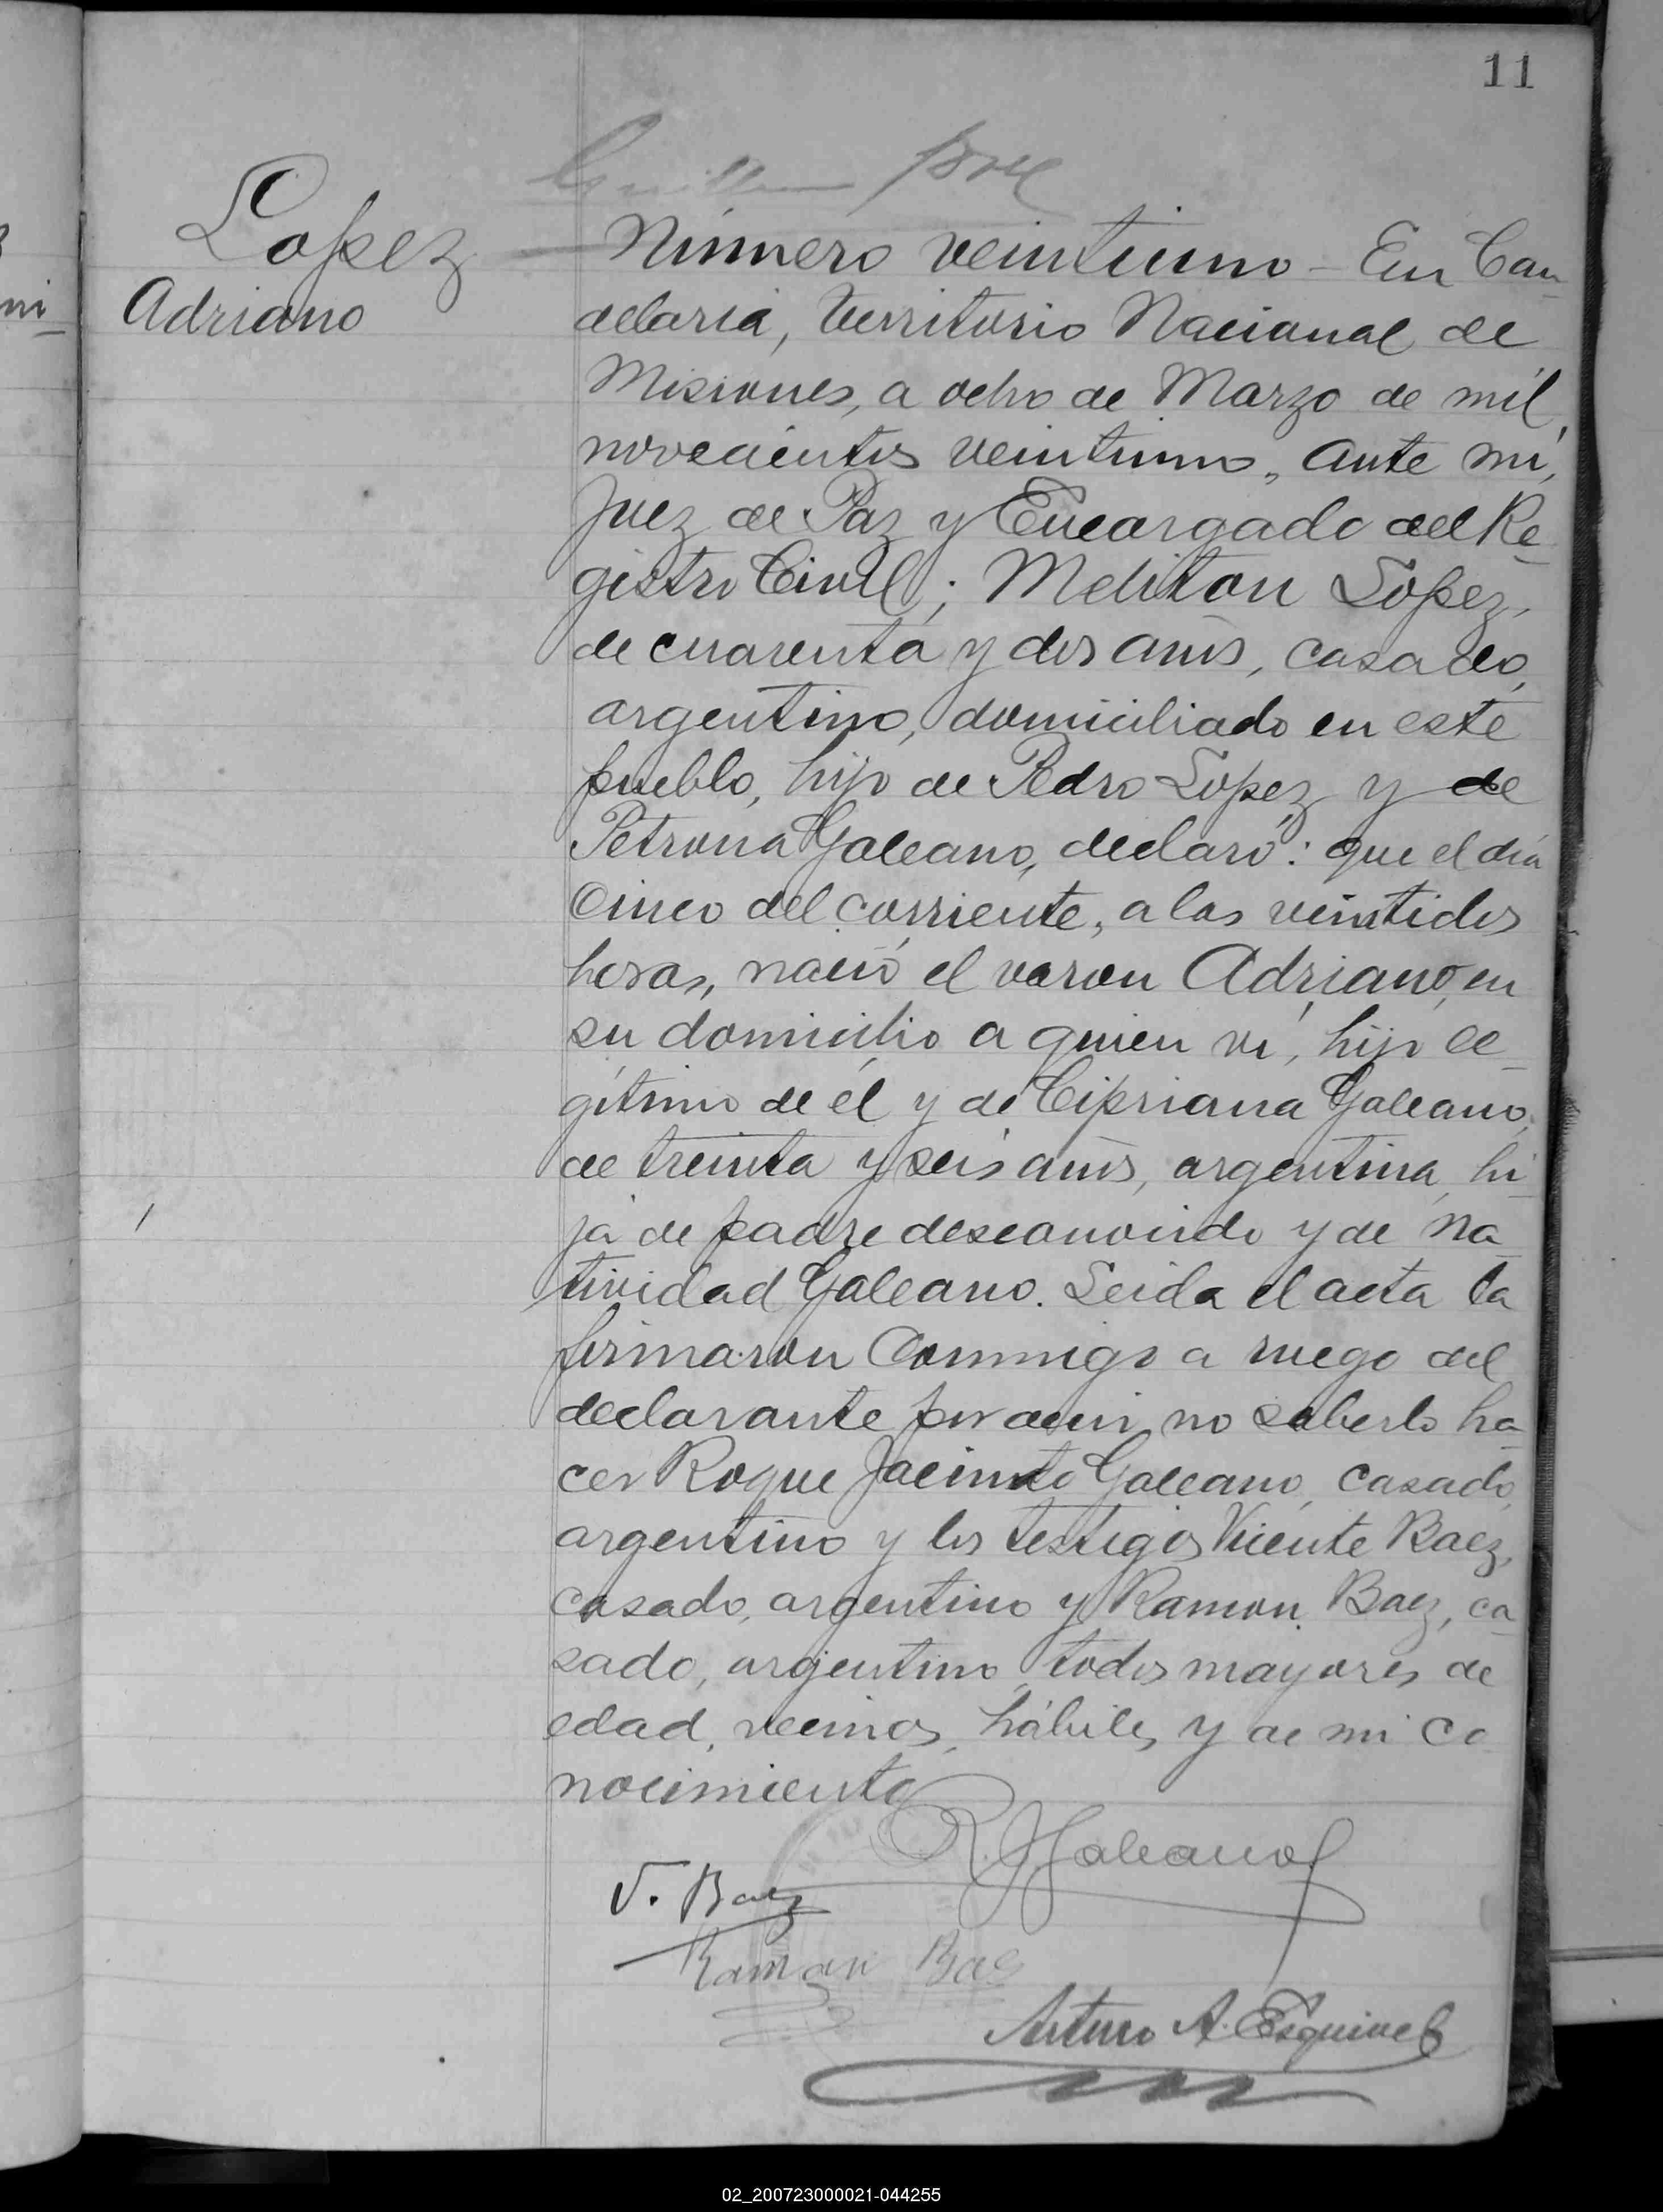 11
Lopez
Adriano
Número veintiuno - En Can-
delaria, Territorio Nacional de
Misiones, a ocho de Marzo de mil
novecientos veintiuno, ante mí,
Juez de Paz y Encargado del Re-
gistro Civil; Meliton Lopez,
de cuarenta y dos años, casado,
argentino, domiciliado en este
pueblo, hijo de Pedro Lopez y de
Petrona Galeano, declaró: que el día
cinco del corriente, a las veintidos
horas, nació el varon Adriano, en
su domicilio a quien ví, hijo le-
gítimo de él y de Cipriana Galeano,
de treinta y seis años, argentina, hi-
ja de padre desconocido y de Na-
tividad Galeano. Leida el acta la
firmaron conmigo a ruego del
declarante por decir no saberlo ha-
cer Roque Jacinto Galeano, casado,
argentino y los testigos Vicente Baez,
casado, argentino y Ramon Baez, ca-
sado, argentino, todos mayores de
edad, vecinos, hábiles y de mi co-
nocimiento
R. J. Galeano
V. Baez
Ramon Bae
Arturo A. Esquivel
02_200723000021-044255